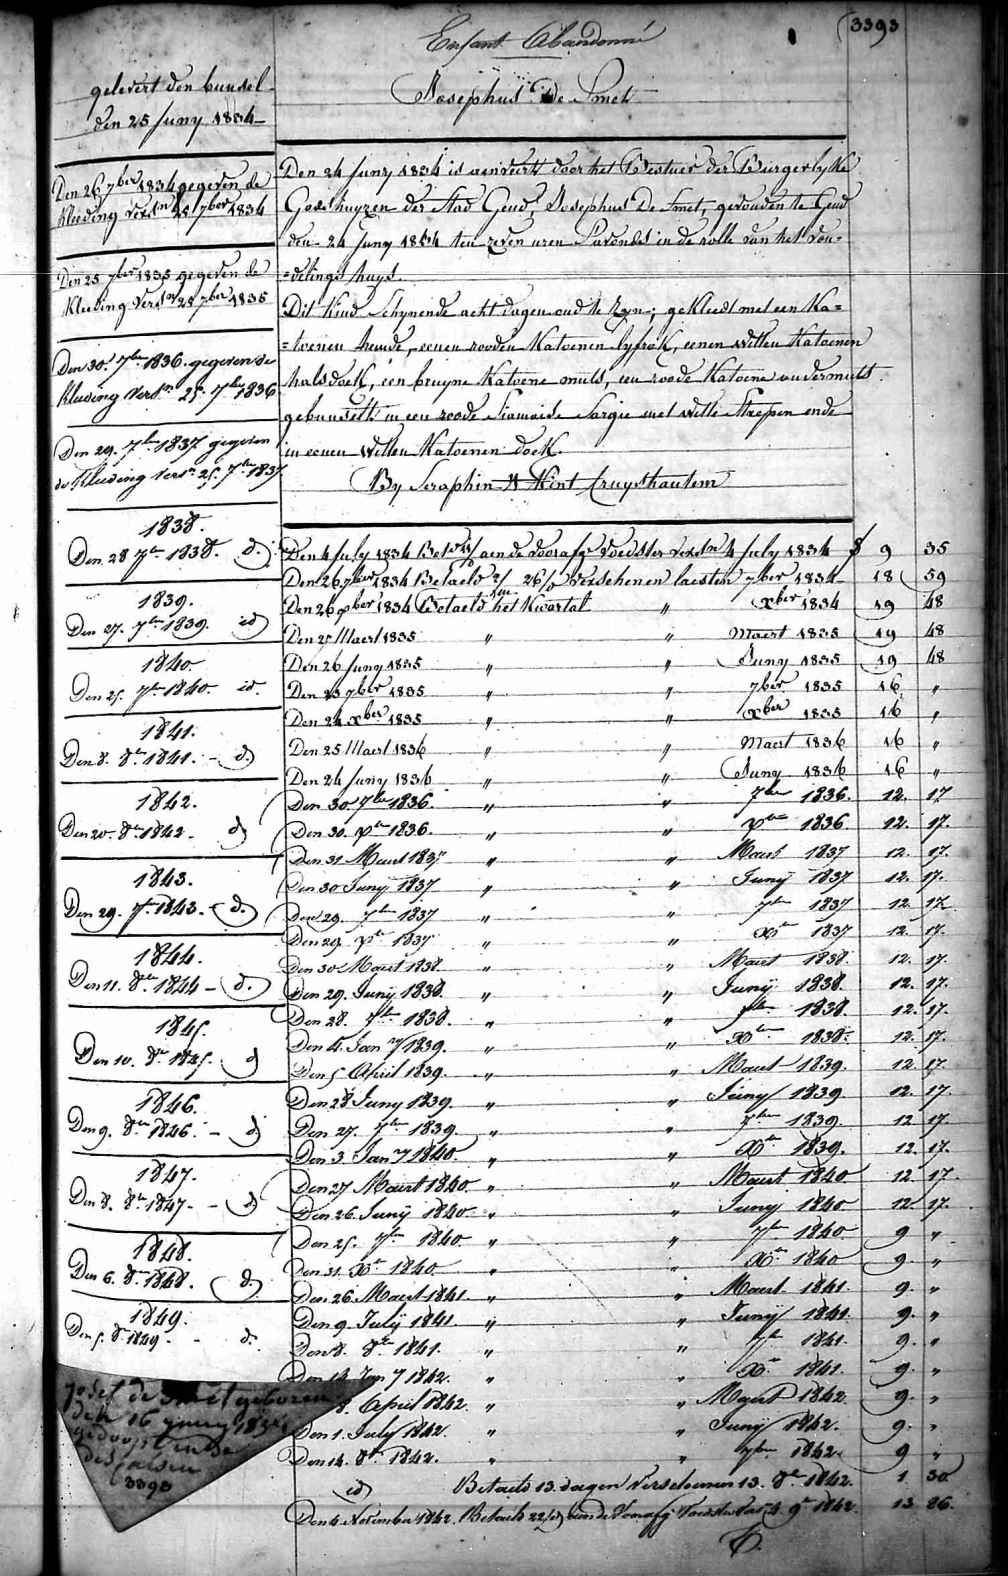 3393
Enfant Abandonné
Josephus De Smet
gelevert den bundel
den 25 Juny 1834
Den 26 7ber 1834 gegeven de
kleeding versn 25 7ber 1834
Den 25 7ber 1835 gegeven de
kleeding versn 25 7ber 1835
Den 30. 7ber 1836. gegeven de
kleeding versn 25. 7ber 1836
Den 29. 7ber 1837 gegeven
de kleeding versn 25. 7ber 1837
1838.
Den 28 7ber 1838. d.
1839.
Den 27. 7ber 1839. id
1840
Den 25. 7ber 1840. id.
1841.
Den 8. 8ber 1841. - d.
1842.
Den 20. 8ber 1842. d
1843.
Den 29. 7ber 1843. - d.
1844.
Den 11. 8ber 1844 - d.
1845.
Den 10. 8ber 1845. d
1846.
Den 9. 8ber 1846. - d
1847.
Den 8. 8ber 1847. - d
1848.
Den 6. 8ber 1848. d.
1849.
Den 5. 8ber 1849. - d.
Josef de Smet geboren
den 16 juny 1834
gedoopt in de
3393
Den 24 Juny 1834 is aenveert door het Bestuer der Burgerlyke
Godshuyzen der Stad Gend, Josephus De Smet, gevonden te Gend
den 24 Juny 1834 ten zeven uren s'avonds in de rolle van het von=
=delings huys.
Dit kind schynende acht dagen oud te zyn; gekleed met een Ka=
=toenen hemde, eenen rooden Katoenen lyfrok, eenen witten Katoenen
halsdoek, een bruyne Katoene muts, een roode Katoene ondermuts
gebusselt in een roode Siamoise Sargie met witte Streepen ende
in eenen witten Katoenen doek.
By Seraphin 'T Kint Cruyshautem
Den 4 July 1834 Bet aen de voorafge Voedster versn 4 July 1834 f 9 35
Den 26 7ber 1834 Betaeld verschenen laesten 7ber 1834 18 59
Den 26 xber 1834 Betaeld het Kwartal " xber 1834 19 48
Den 25 Maert 1835 " " Maert 1835 19 48
Den 26 Juny 1835 " " Juny 1835 19 48
Den 25 7ber 1835 " " 7ber 1835 16 "
Den 24 xber 1835 " " xber 1835 16 "
Den 25 Maert 1836 " " Maert 1836 16 "
Den 24 Juny 1836 " " Juny 1836 16 "
Den 30 7ber 1836. " " 7ber 1836. 12. 17
Den 30. xber 1836. " " xber 1836 12. 17.
Den 31 Maert 1837 " " Maert 1837 12. 17.
Den 30 Juny 1837 " " Junij 1837 12. 17.
Den 29. 7ber 1837 " " 7ber 1837 12. 17
Den 29 xber 1837 " " xber 1837 12. 17.
Den 30 Maert 1838. " " Maert 1838. 12. 17.
Den 29. Junij 1838. " " Junij 1838. 12. 17.
Den 28. 7ber 1838. " " 7ber 1838. 12. 17.
Den 4. Jany 1839. " " xber 1838. 12. 17.
Den 5 April 1839. " " Maert 1839. 12. 17
Den 28 Juny 1839. " " Juny 1839. 12. 17.
Den 27. 7ber 1839. " " 7ber 1839. 12 17.
Den 3. Jany 1840 " " xber 1839. 12. 17.
Den 27 Maert 1840 " " Maert 1840 12. 17.
Den 26. Junij 1840. " " Junij 1840 12. 17.
Den 25. 7ber 1840 " " 7ber 1840 9 "
Den 31. xber 1840 " " xber 1840 9. "
Den 26. Maert 1841. " " Maert 1841. 9. "
Den 9. Julij 1841. " " Junij 1841. 9. "
Den 8. 8ber 1841. " " 7ber 1841. 9. "
Den 14. Jany 1842. " " xber 1841. 9. "
8. April 1842. " " Maert 1842. 9. "
Den 1. July 1842. " " Junij 1842. 9. "
Den 14. 8ber 1842. " " 7ber 1842. 9 "
id Betaeld 13. dagen verschenen 13. 8ber 1842. 1 30
Den 4 November 1842. Betaeld aen de voorafg. Voedster 4. 9ber 1842. 13 26.